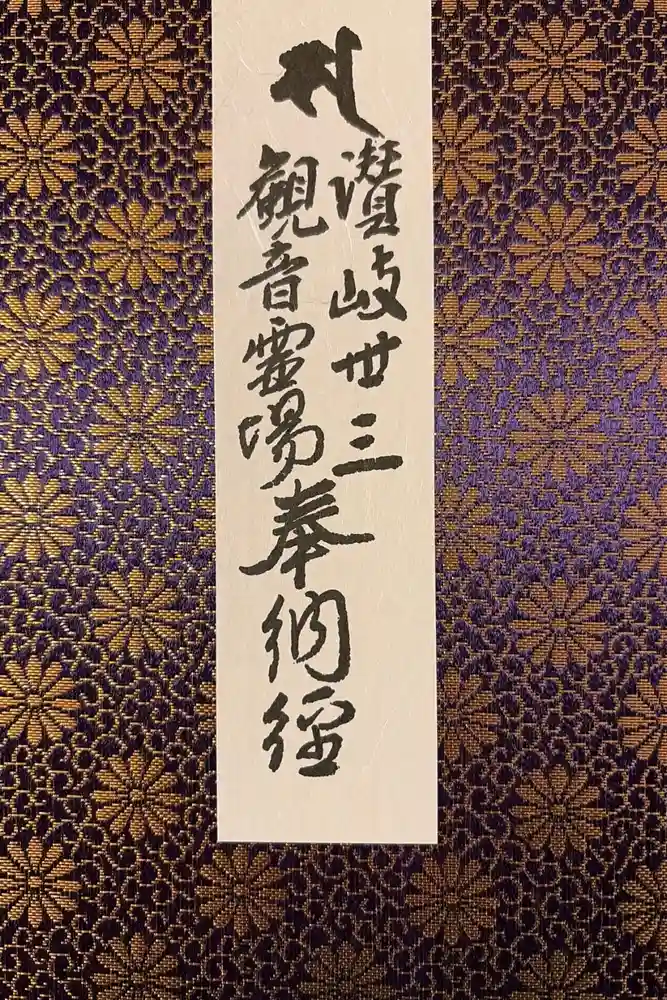 讃岐卅三
観音霊場
奉納経